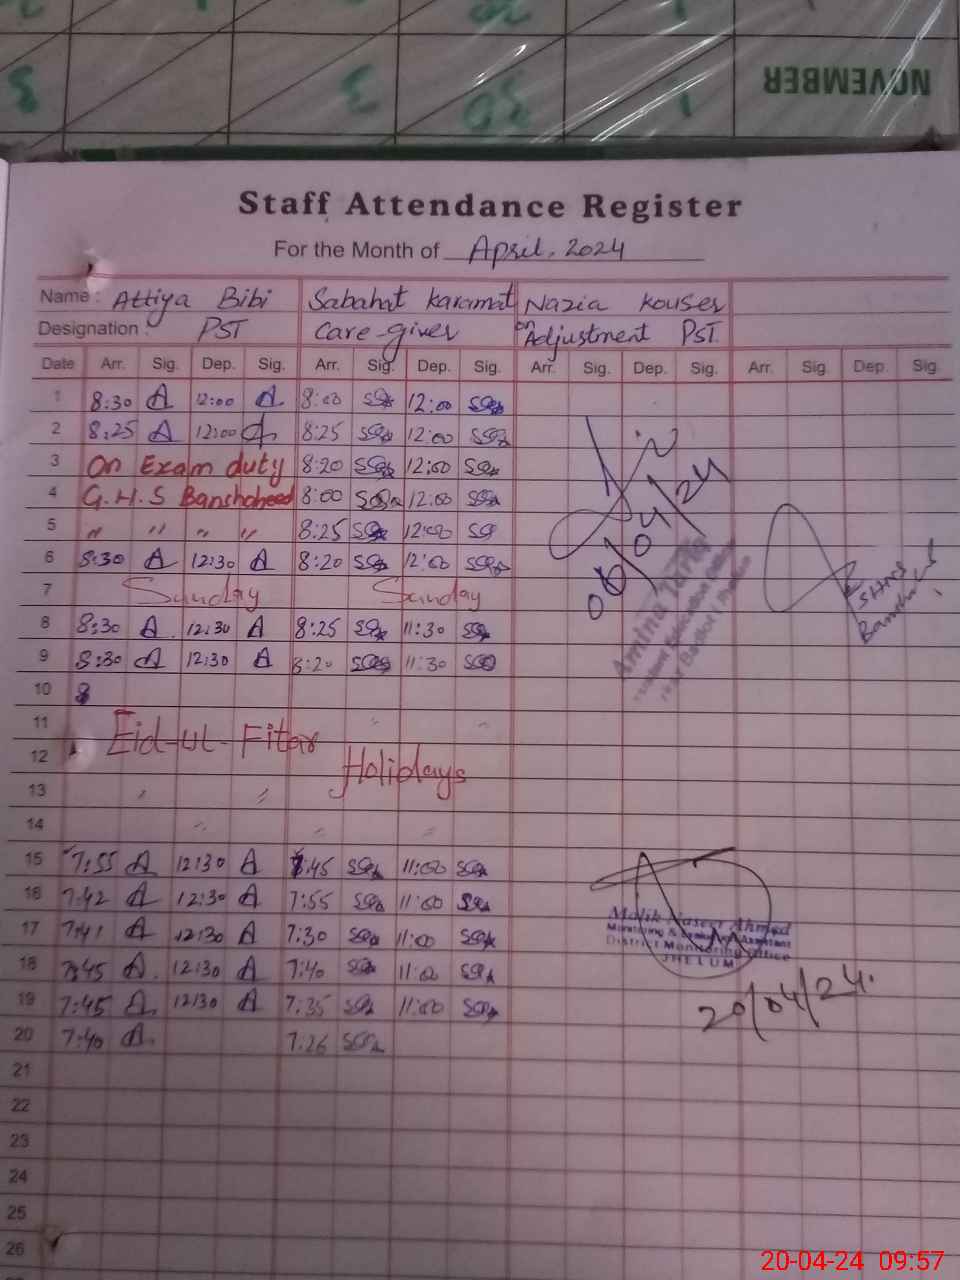 NOVEMBER
3 30 1
Staff Attendance Register
For the Month of April, 2024
Name : Attiya Bibi Sabahat Karamat Nazia Kouser
Designation : PST Care-giver on Adjustment PST.
Date Arr. Sig. Dep. Sig. Arr. Sig. Dep. Sig. Arr. Sig. Dep. Sig. Arr. Sig. Dep. Sig.
1 8:30 A 12:00 A 8:00 12:00
2 8:25 A 12:00 A 8:25 12:00
3 On Exam duty 8:20 12:00
4 G.H.S Banshaheed 8:00 12:00
5 " " " " 8:25 12:00
6 8:30 A 12:30 A 8:20 12:00
06/04/24
7 Sunday Sunday
8 8:30 A 12:30 A 8:25 11:30
9 8:30 A 12:30 A 8:20 11:30
Amina Tariq
10 8
11 Eid-ul-Fitar
12 Holidays
13 " "
14
15 7:55 A 12:30 A 7:45 11:00
16 7:42 A 12:30 A 7:55 11:00
17 7:41 A 12:30 A 7:30 11:00
18 7:45 A 12:30 A 7:40 11:00
19 7:45 A 12:30 A 7:35 11:00
20 7:40 A 7:26
Malik Naseer Ahmed
Monitoring & Evaluation Assistant
District Monitoring Office
JHELUM
20/04/24.
21
22
23
24
25
26
20-04-24 09:57